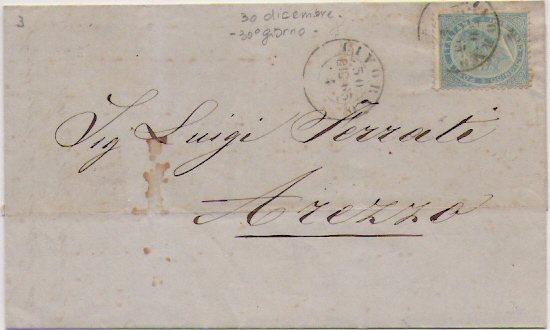 3
30 dicembre.
- 30° giorno.
LIVORNO
30
DIC 63
Sig Luigi Ferrati
Arezzo